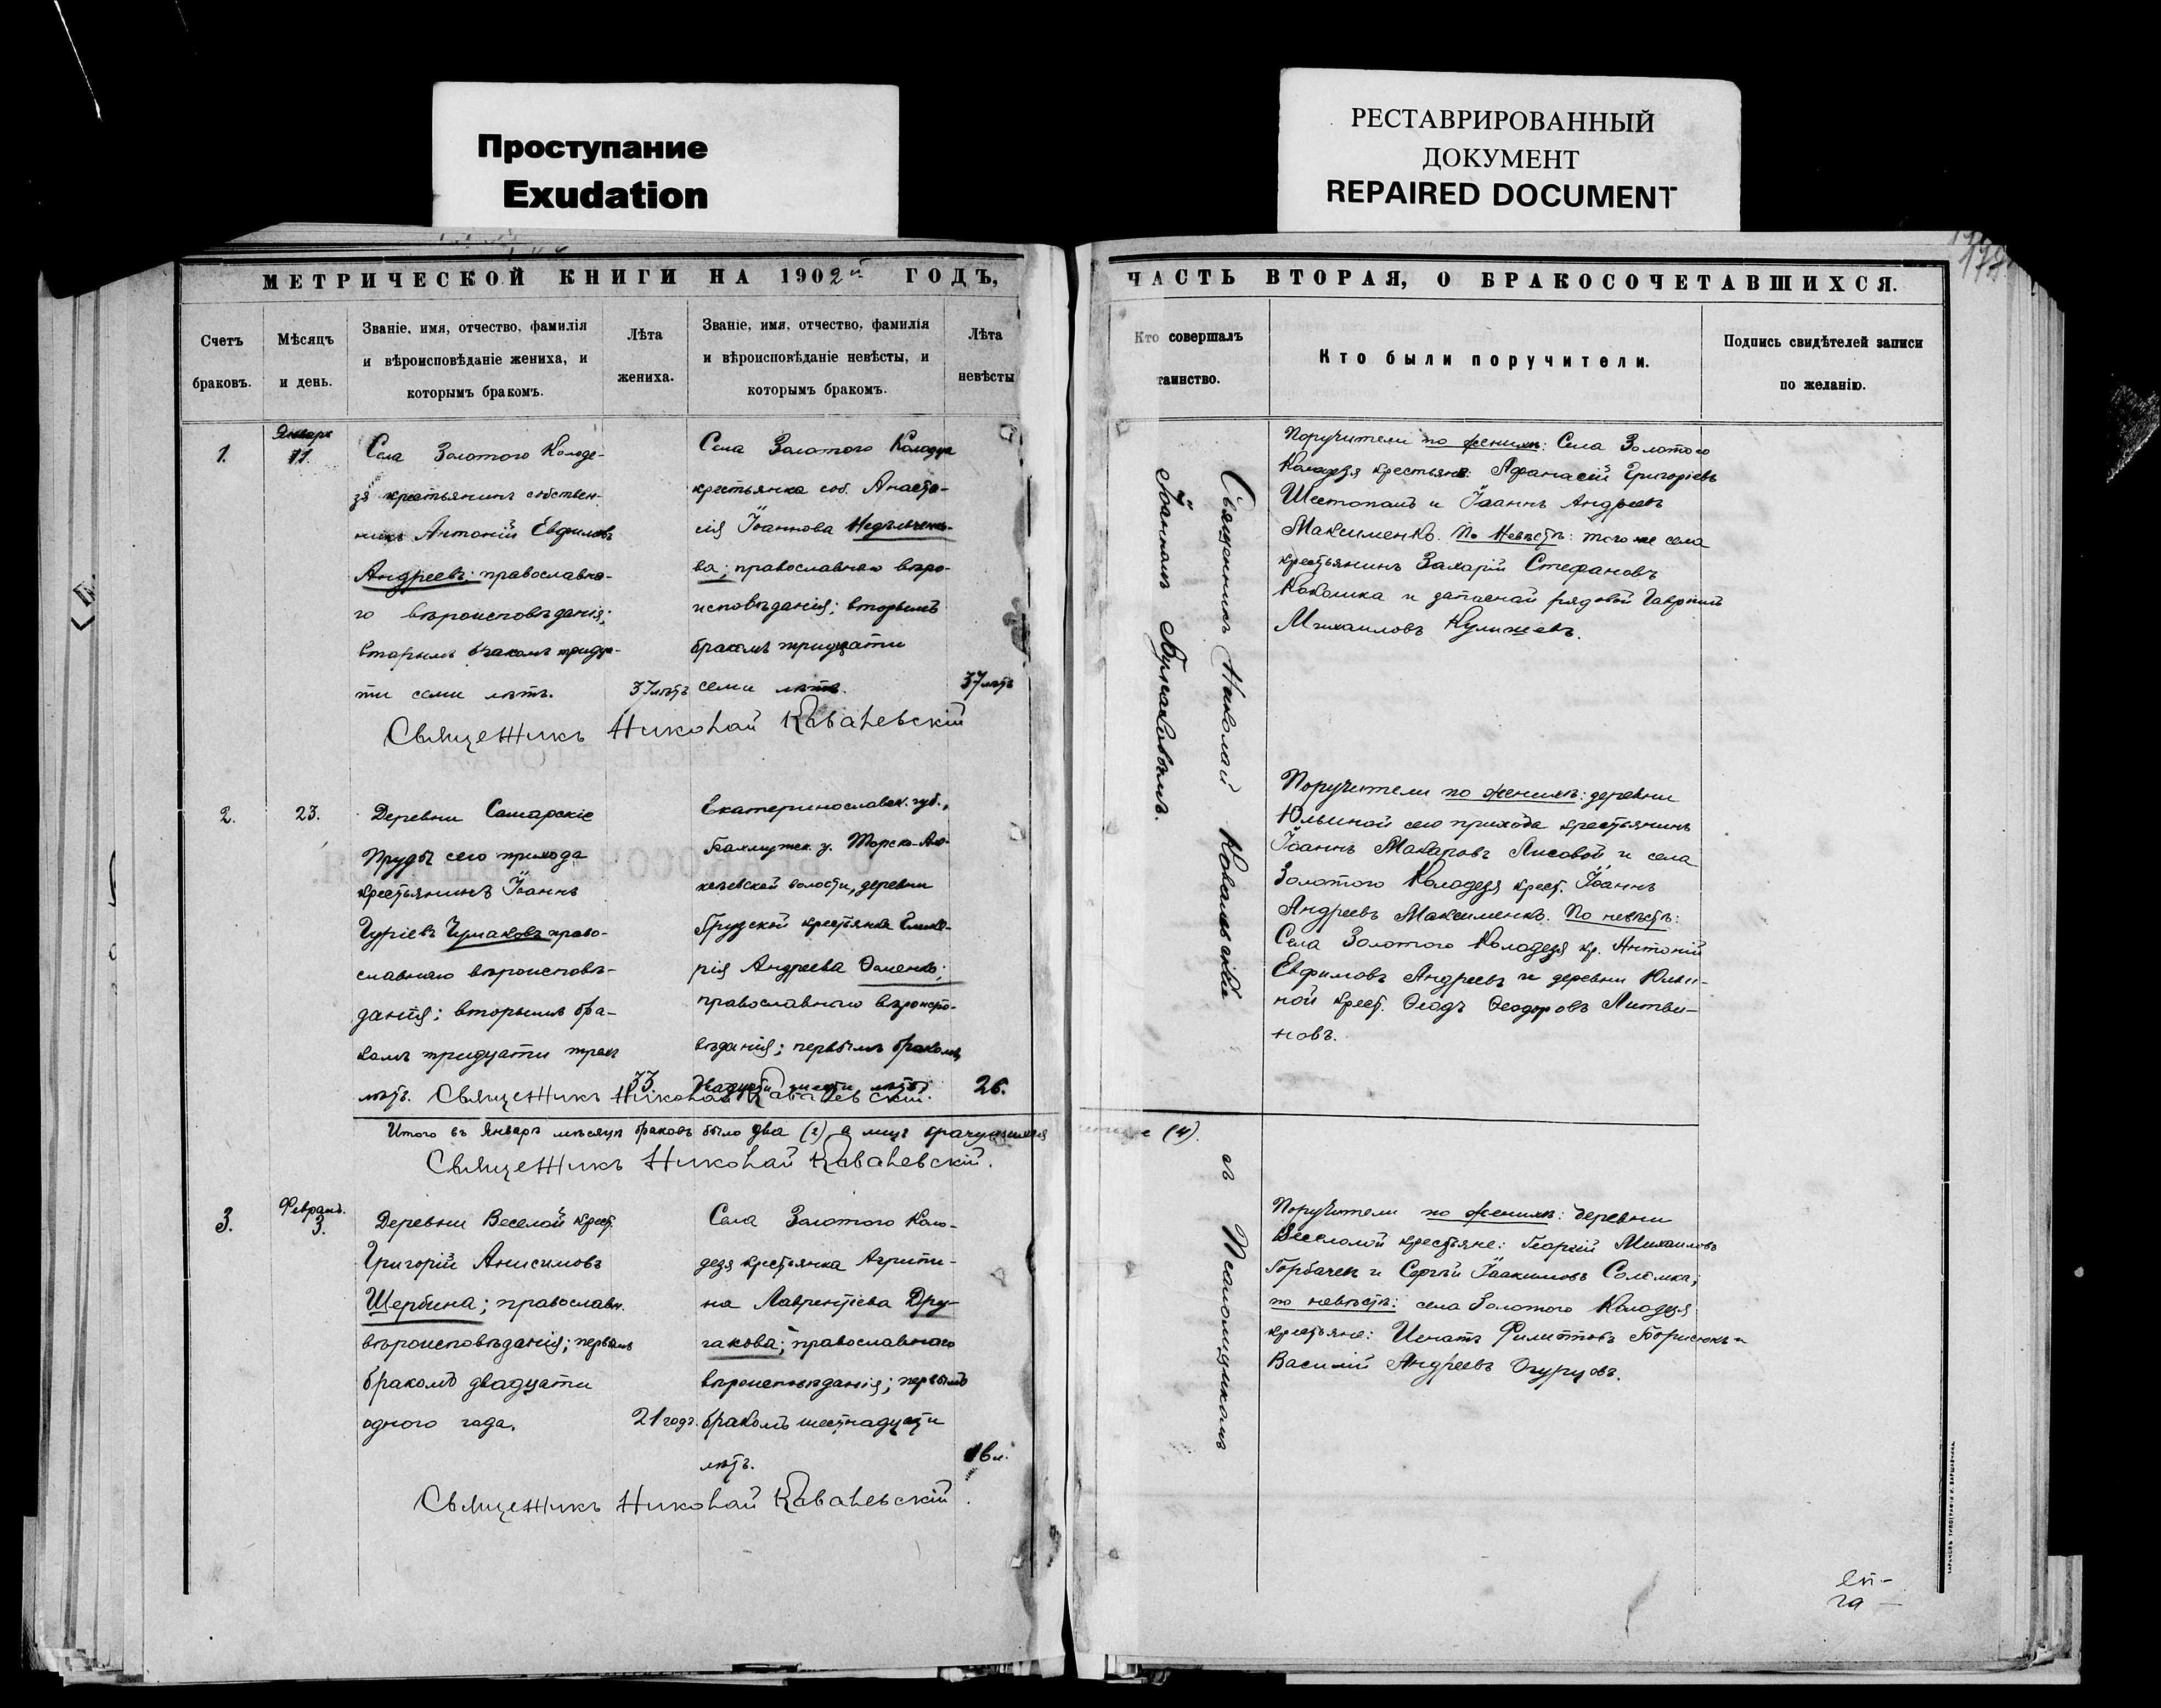 Проступание
Exudation
РЕСТАВРИРОВАННЫЙ
ДОКУМЕНТ
REPAIRED DOCUMENT
МЕТРИЧЕСКОЙ КНИГИ НА 1902й ГОДЪ,
Счетъ
браковъ.
Мѣсяцъ
и день.
Званіе, имя, отчество, фамилія
и вѣроисповѣданіе жениха, и
которымъ бракомъ.
Лѣта
жениха.
Званіе, имя, отчество, фамилія
и вѣроисповѣданіе невѣсты, и
которымъ бракомъ.
Лѣта
невѣсты
1.
Январь
11.
Села Золотого Колоде-
зя крестьянинъ собствен-
никъ Антоній Евфимовъ
Андреевъ; православна-
го вѣроисповѣданія;
вторымъ бракомъ тридца-
ти семи лѣтъ.
37 лѣтъ
Села Золотого Колодезя
крестьянка соб. Анаста-
сія Іоаннова
ва; православнаго вѣро-
исповѣданія; вторымъ
бракомъ тридцати
семи лѣтъ.
37 лѣтъ
Священникъ Николай Ковалевскій
2.
23.
Деревни Самарскіе
Пруды сего прихода
крестьянинъ Іоаннъ
Гуріевъ Чумаковъ право-
славнаго вѣроисповѣ-
данія; вторымъ бра-
комъ тридцати трехъ
лѣтъ.
33.
Екатеринославск. губ.,
Бахмутск. у. Торско-Але-
ксѣевской волости, деревни
Грузской крестьянка Глике-
рія Андреева
православнаго вѣроиспо-
вѣданія; первымъ бракомъ,
двадцати шести лѣтъ
26.
Священникъ Николай Ковалевскій.
Итого въ Январѣ мѣсяцѣ браковъ было два (2) а лицъ брачущихся
Священникъ Николай Ковалевскій.
3.
Февраль.
3.
Деревни Веселой крест.
Григорій Анисимовъ
Щербина; православн.
вѣроисповѣданія; первымъ
бракомъ двадцати
одного года.
21 годъ.
Села Золотого Коло-
дезя крестьянка Агрипи-
на Лаврентіева Дру-
гакова; православнаго
вѣроисповѣданія; первымъ
бракомъ шестнадцати
лѣтъ.
16 л.
Священникъ Николай Ковалевскій.
ЧАСТЬ ВТОРАЯ, О БРАКОСОЧЕТАВШИХСЯ.
Кто совершалъ
таинство.
Кто были поручители.
Подпись свидѣтелей записи
по желанію.
Священникъ Николай Ковалевскій
съ Псаломщикомъ
Іоанномъ
(4).
Поручители по женихѣ: Села Золотого
Колодезя крестьяне: Афанасій Григоріевъ
Шестопалъ и Іоаннъ Андреевъ
Максименко. По Невѣстѣ: того же села
крестьянинъ Захарій Стефановъ
и запасной рядовой Гавріилъ
Михаиловъ Кулишевъ.
Поручители по женихѣ: деревни
Юльиной сего прихода крестьянинъ
Іоаннъ Макаровъ Лисовой и села
Золотого Колодезя крест. Іоаннъ
Андреевъ Максименко. По невѣстѣ:
Села Золотого Колодезя кр. Антоній
Евфимовъ Андреевъ и деревни Юльи-
ной крест. Ѳеодоровъ Литви-
новъ.
Поручители по женихѣ: деревни
Веселой крестьяне: Георгій Михаиловъ
и Сергѣй Іоакимовъ Соломка;
по невѣстѣ: села Золотого Колодезя
крестьяне: Игнатъ Филипповъ Борисюкъ и
Василій Андреевъ Огурцовъ.